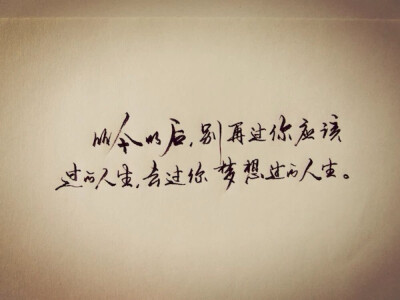 从今以后,别再过你应该
过的人生,去过你梦想过的人生。